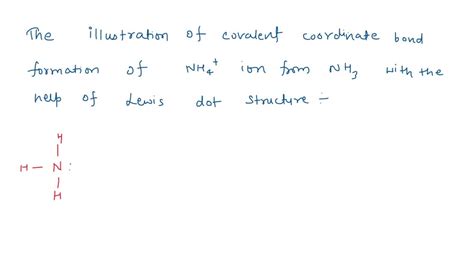 The illustration of covalent coordinate bond
formation of NH4+ ion from NH3 with the
help of Lewis dot structure :-
H
H - N :
H